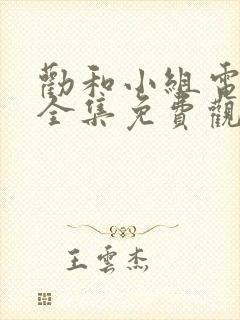 勸和小組電
全集免費觀
王雲杰